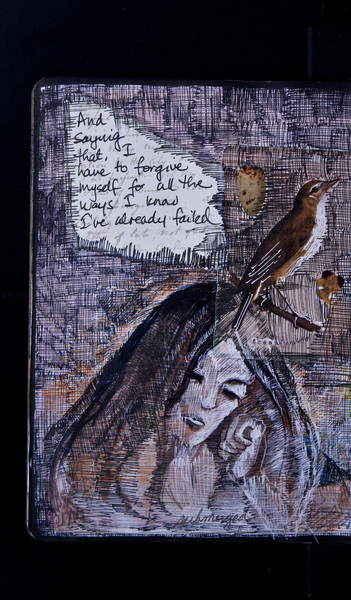 And
saying
that, I
have to forgive
myself for all the
ways I know
I've already failed
submerged